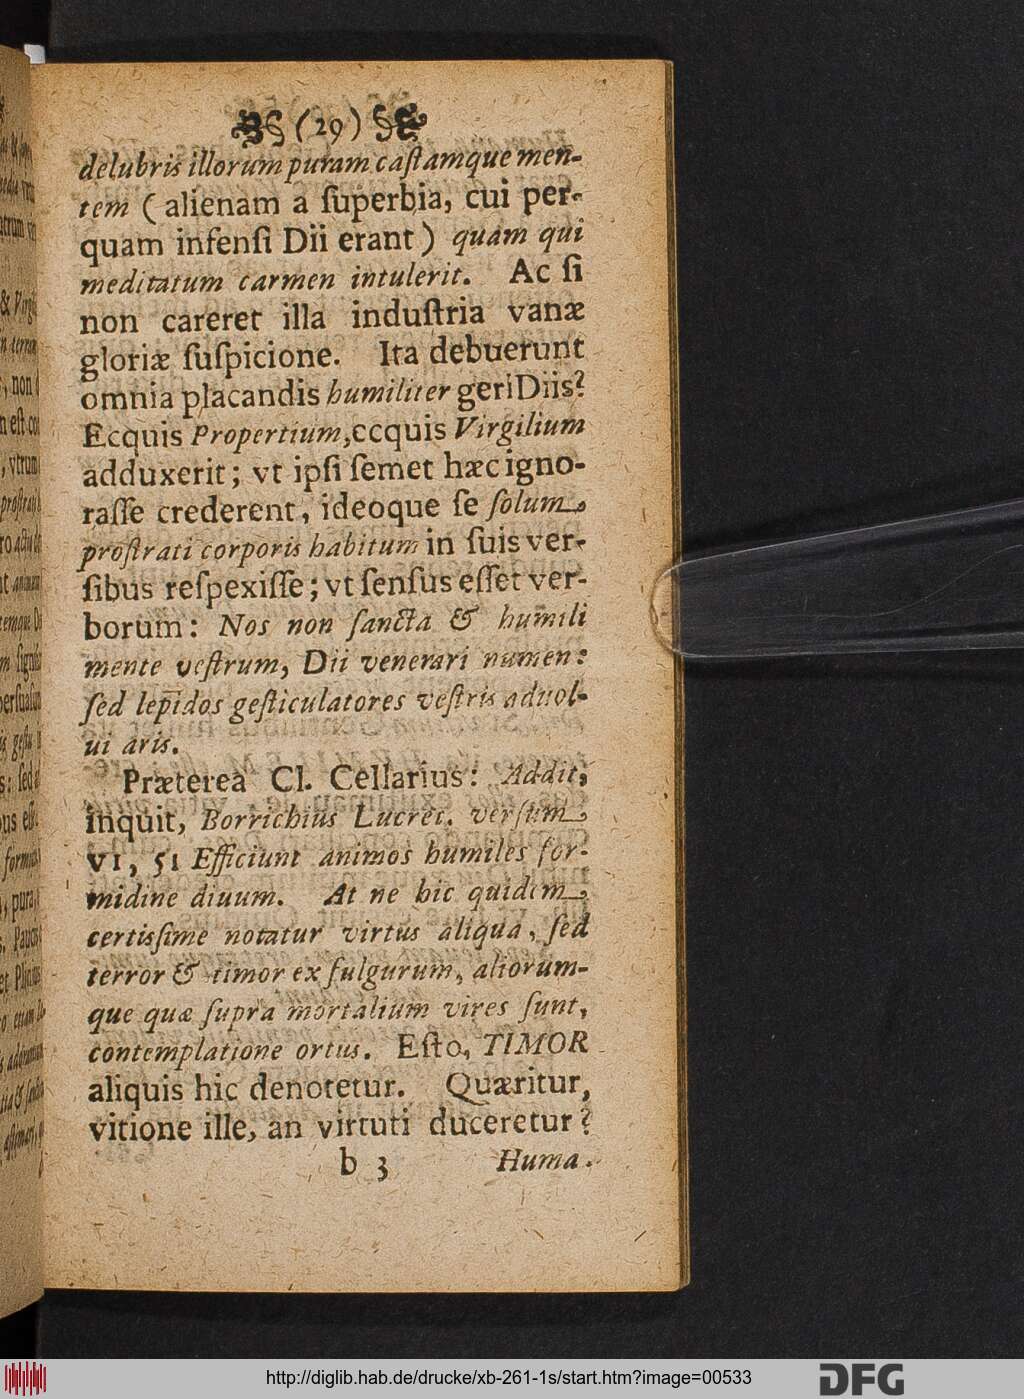 (29)
delubris illorum puram castamque men-
tem (alienam a ſuperbia, cui per-
quam infenſi Dii erant) quam qui
meditatum carmen intulerit. Ac ſi
non careret illa induſtria vanæ
gloriæ ſuſpicione. Ita debuerunt
omnia placandis humiliter geri Diis?
Ecquis Propertium, ecquis Virgilium
adduxerit; vt ipſi ſemet hæc igno-
raſſe crederent, ideoque ſe ſolum
proſtrati corporis habitum in ſuis ver-
ſibus reſpexiſſe; vt ſenſus eſſet ver-
borum: Nos non ſancta & humili
mente veſtrum, Dii venerari numen:
ſed lepidos geſticulatores veſtris aduol-
ui aris.
Præterea Cl. Cellarius: Addit,
inquit, Borrichius Lucret. verſum
VI, 51 Efficiunt animos humiles for-
midine diuum. At ne hic quidem
certisſime notatur virtus aliqua, ſed
terror & timor ex fulgurum, aliorum-
que quæ ſupra mortalium vires ſunt,
contemplatione ortus. Eſto, TIMOR
aliquis hic denotetur. Quæritur,
vitione ille, an virtuti duceretur?
b 3 Huma-
http://diglib.hab.de/drucke/xb-261-1s/start.htm?image=00533
DFG